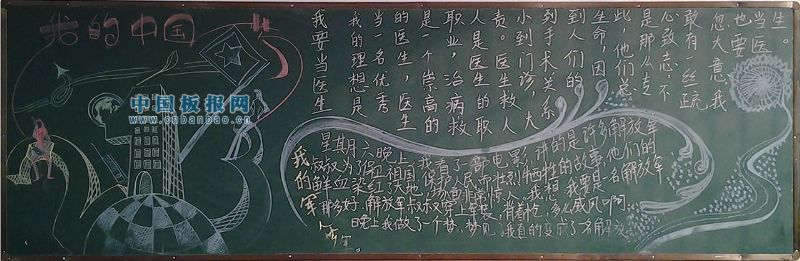 我的中国梦
中国板报网
www.cnbanbao.cn
我要当医生
我的理想是
当一名优秀
的医生，医生
是一个崇高的
职业，治病救
人是医生的职
责。医生救人
小到门诊，大
到手术关系
到人们的
生命，因
此，他们总
是那么专
心致志，不
敢有一丝疏
忽大意，我
也要
当医
生。
我的军
星期六晚上，我看了一部电影，讲的是许多解放军
叔叔为了保卫祖国，保护人民而壮烈牺牲的故事，他们的
鲜血染红了大地，场面非常惊人。我想，我要是一名解放军
那多好，解放军叔叔穿上军装，肖着枪，多么威风啊。
晚上我做了一个梦，梦见我真的变成了一名解放
军。